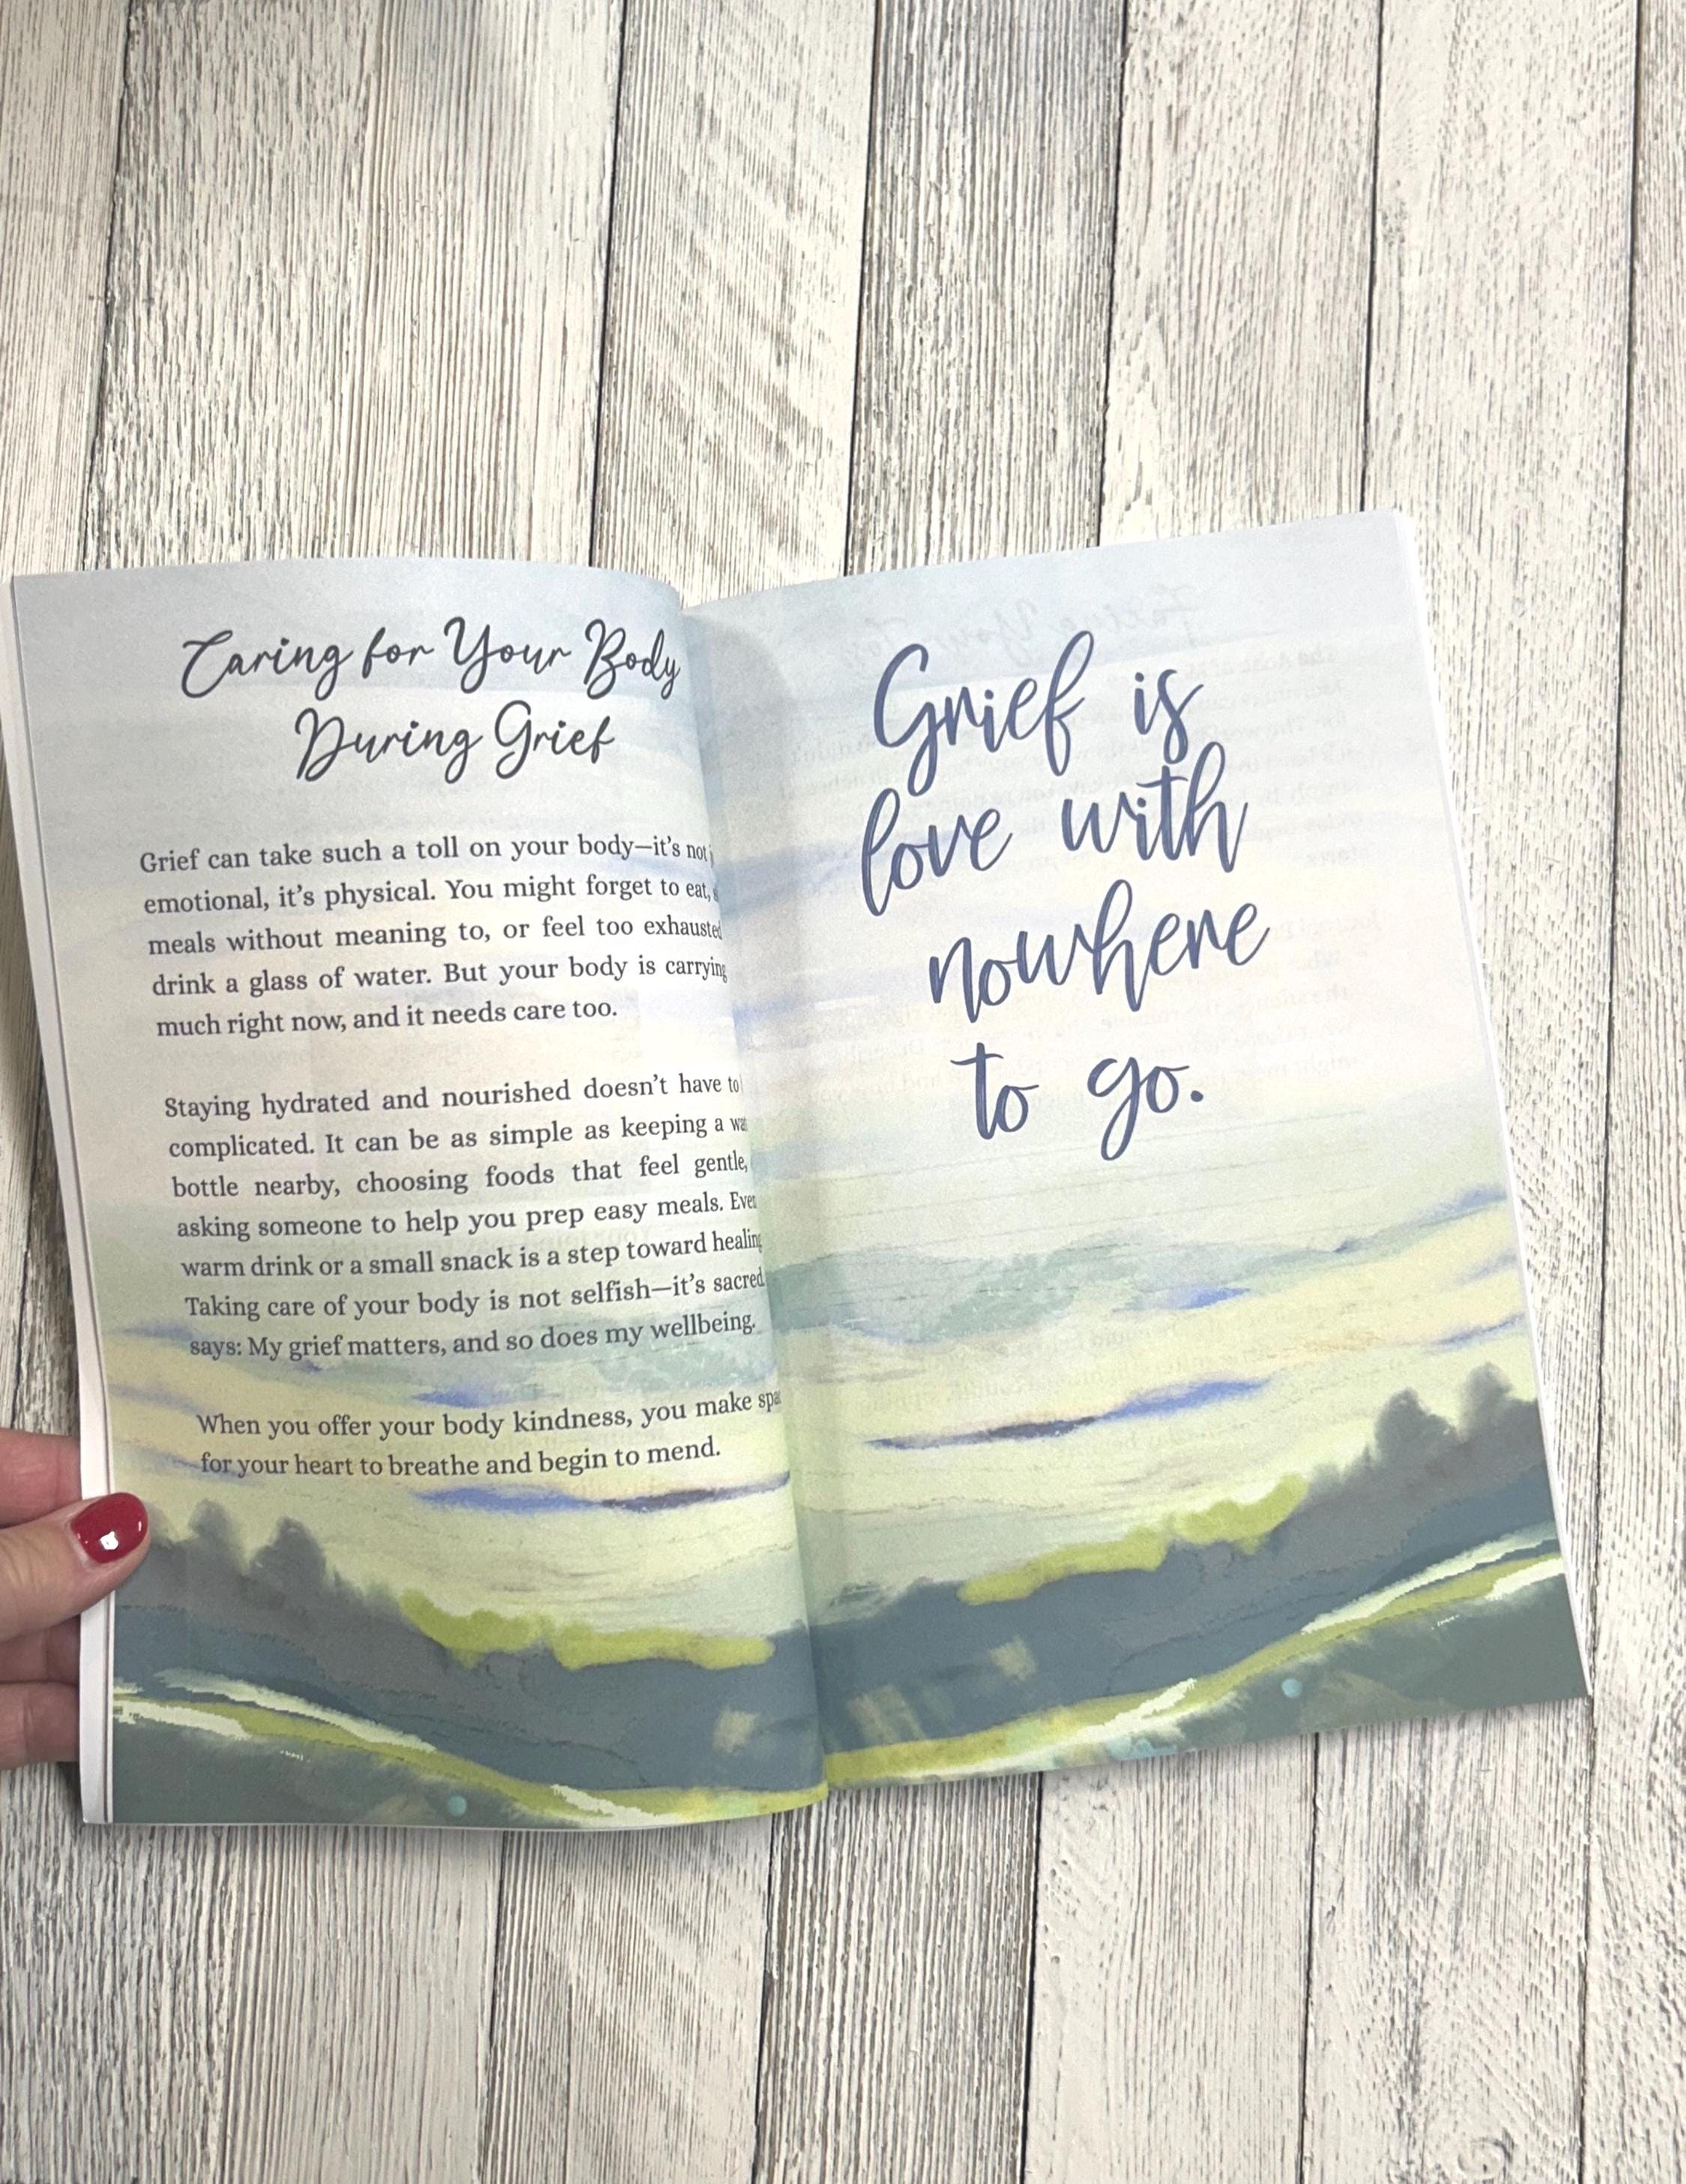 Caring for Your Body
During Grief
Grief can take such a toll on your body—it's not
emotional, it's physical. You might forget to eat,
meals without meaning to, or feel too exhausted
drink a glass of water. But your body is carrying
much right now, and it needs care too.
Staying hydrated and nourished doesn't have to
complicated. It can be as simple as keeping a
bottle nearby, choosing foods that feel gentle,
asking someone to help you prep easy meals. Even
warm drink or a small snack is a step toward healing
Taking care of your body is not selfish—it's sacred
says: My grief matters, and so does my wellbeing.
When you offer your body kindness, you make
for your heart to breathe and begin to mend.
Grief is
love with
nowhere
to go.